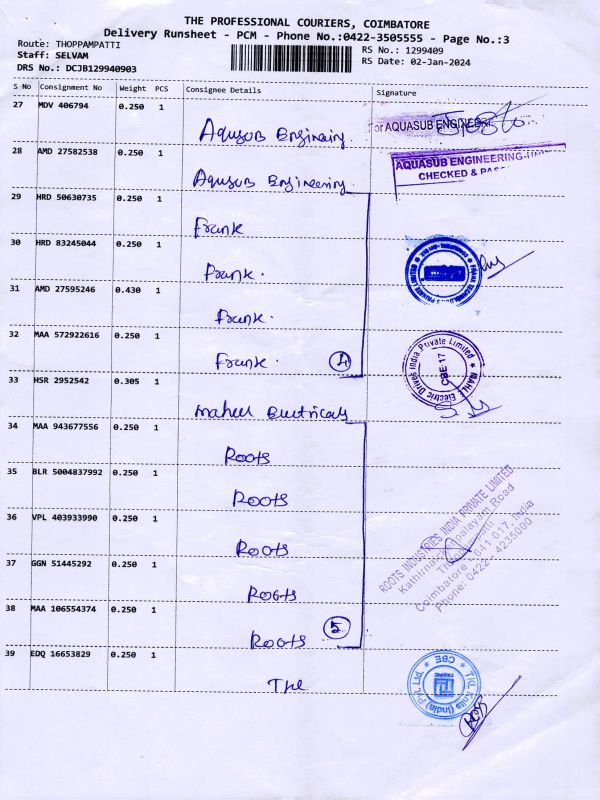 THE PROFESSIONAL COURIERS, COIMBATORE
Delivery Runsheet - PCM - Phone No.:0422-3505555 - Page No.:3
Route: THOPPAMPATTI
RS No.: 1299409
Staff: SELVAM
RS Date: 02-Jan-2024
DRS No.: DCJB129940903
S No Consignment No Weight PCS Consignee Details Signature
27 MDV 406794 0.250 1
Aquasub Engineering
For AQUASUB ENGINEERING
28 AMD 27582538 0.250 1
AQUASUB ENGINEERING
CHECKED &
Aquasub Engineering
29 HRD 50630735 0.250 1
Frank
30 HRD 83245044 0.250 1
Frank.
31 AMD 27595246 0.430 1
Frank.
32 MAA 572922616 0.250 1
Frank.
4
MAHLE Electric Drives India Private Limited
CBE-17
33 HSR 2952542 0.305 1
Electricals
34 MAA 943677556 0.250 1
Roots
35 BLR 5004837992 0.250 1
Roots
36 VPL 403933990 0.250 1
Roots
ROOTS INDUSTRIES INDIA PRIVATE LIMITED
Road
Coimbatore - 641 017, India
Phone: 0422 - 4235000
37 GGN 51445292 0.250 1
Roots
38 MAA 106554374 0.250 1
Roots
5
39 EDQ 16653829 0.250 1
TKL Knits (India) Pvt. Ltd. CBE